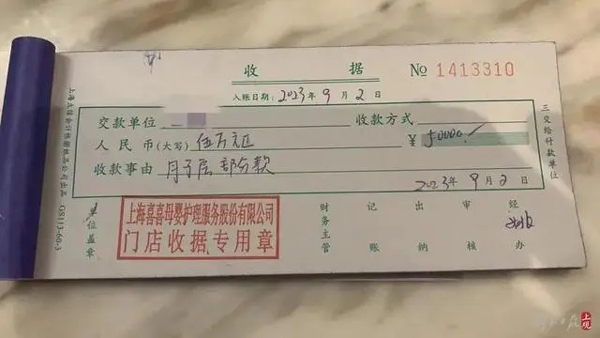 收 据 № 1413310
入账日期：2023年9月2日
交款单位 收款方式
人民币（大写） 伍万元正 ¥ 50000.
收款事由 月子居 部分款
2023年9月2日
上海喜喜母婴护理服务股份有限公司
门店收据专用章
单位盖章
财务主管
记账
出纳
审核
经办
三交给付款单位
GS113-60-3
上观